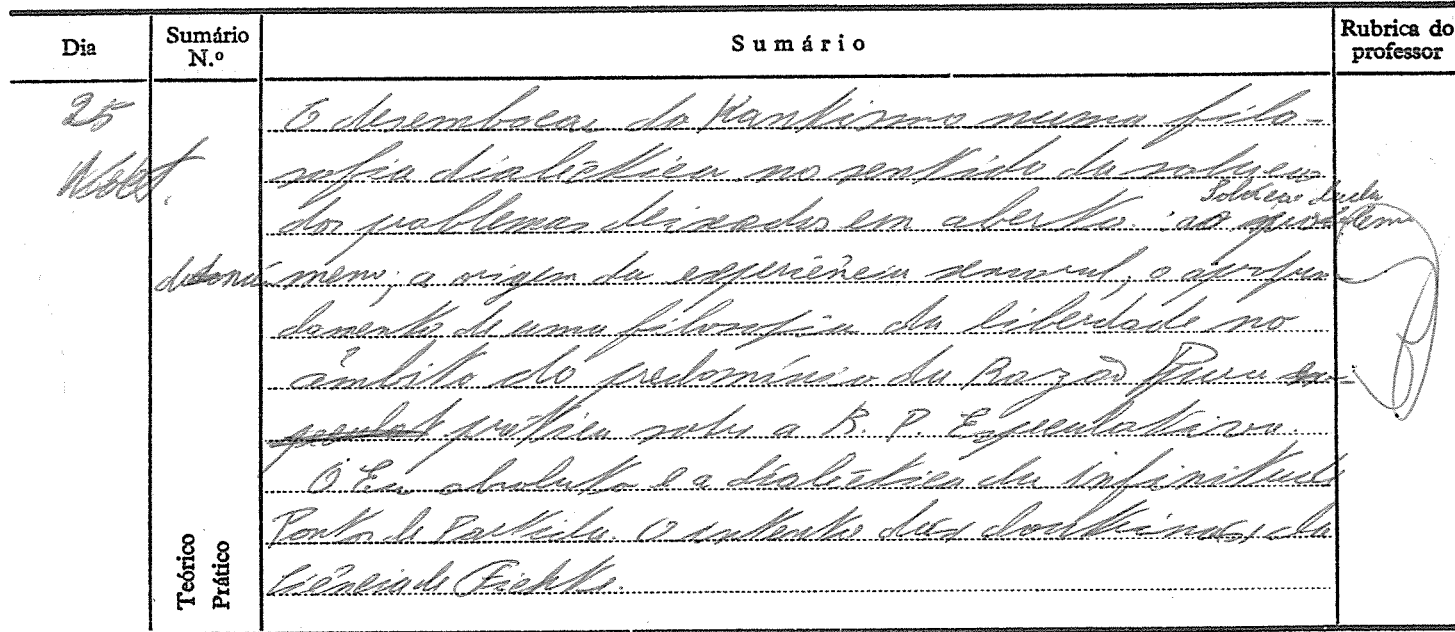 Dia
Sumário
N.º
Sumário
Rubrica do
professor
25
O desembocar do Kantismo numa filo-
sofia dialéctica no sentido da solução
dos problemas deixados em aberto: ao problema
Solução dada
do nou
meno; a origem da experiência sensível; o aprofun
damento de uma filosofia da liberdade no
âmbito do predomínio da Razão Pura
prática sobre a R. P. Especulativa.
O Eu absoluto e a dialéctica da infinitude
Ponto de Partida. O intento das doutrinas da
Ciência de Fichte.
Teórico
Prático